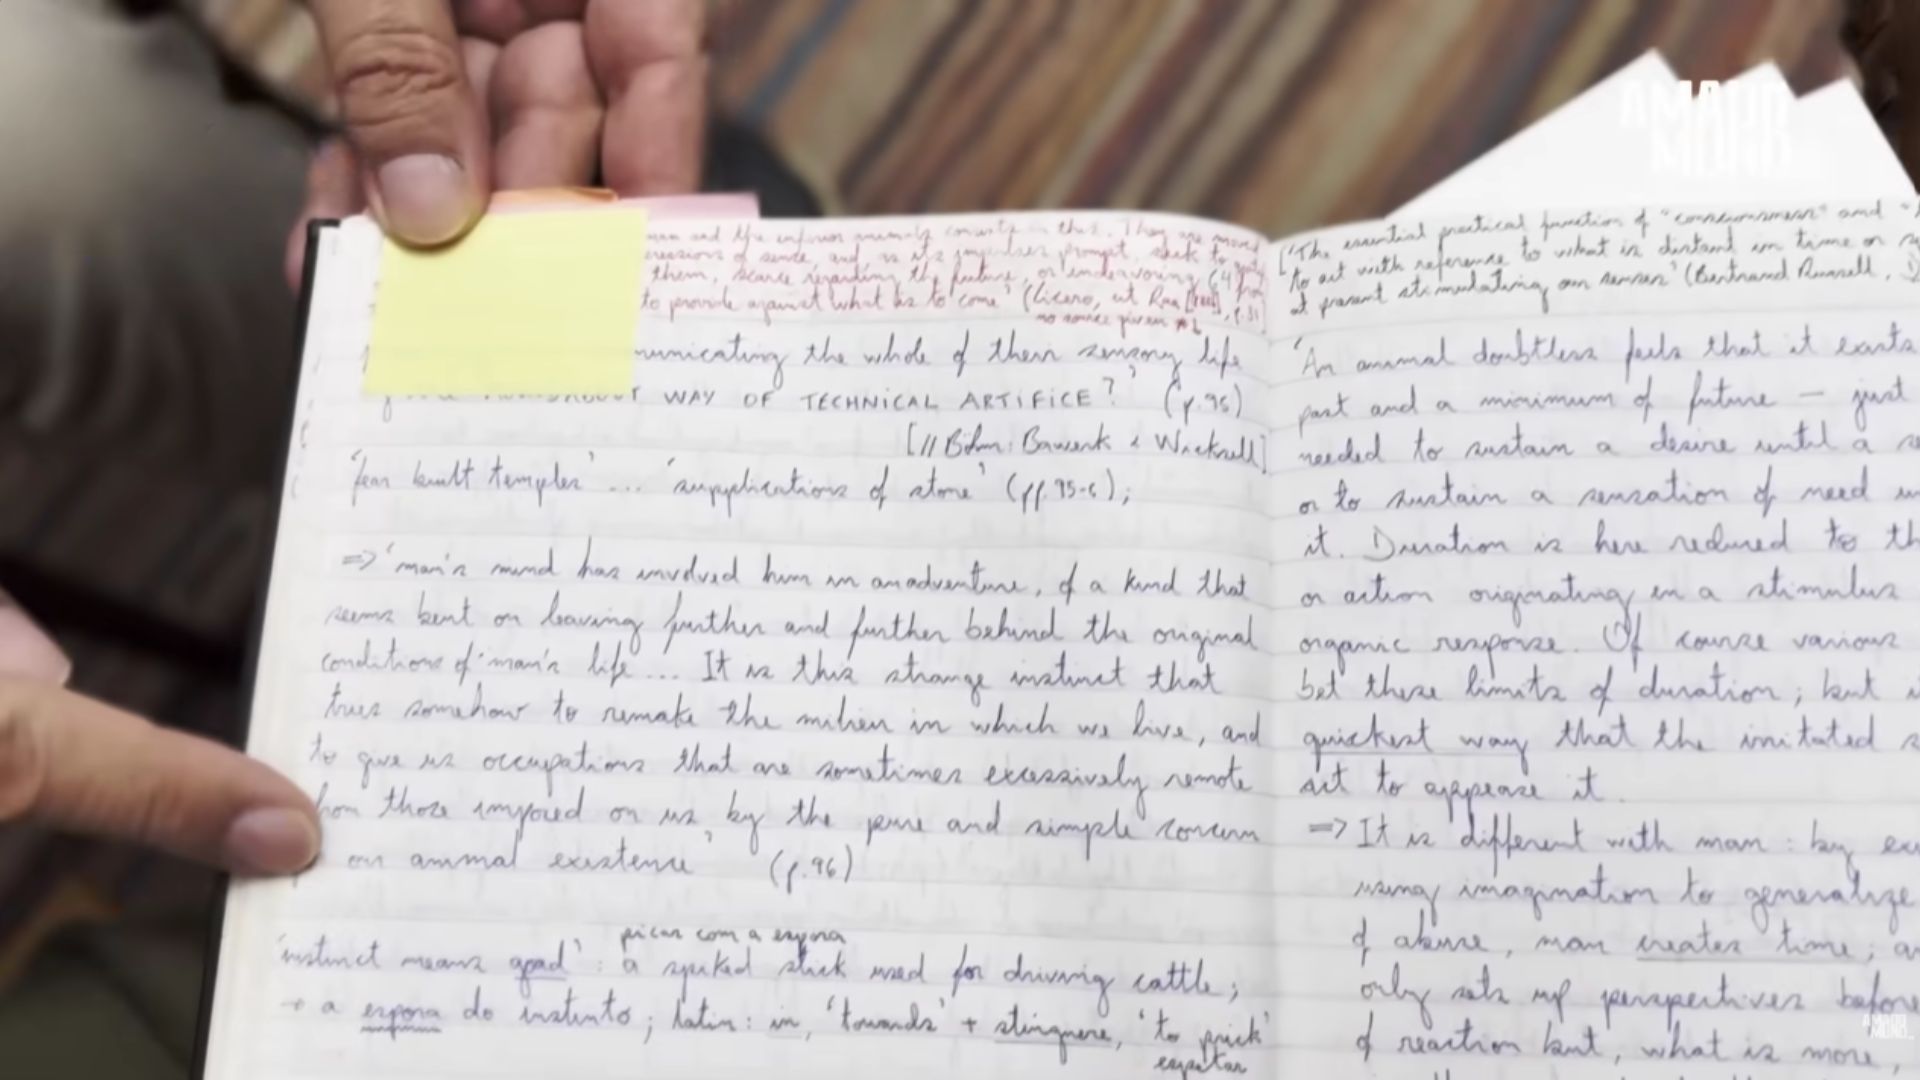 man and the inferior animals consists in this. They are moved
of sense, and, as its impulses prompt, seek to
them, scarce regarding the future, or endeavoring
to provide against what is to come' (Cicero, cit Rae, p.
no source given
municating the whole of their sensory life
WAY OF TECHNICAL ARTIFICE?' (p.95)
[// Böhm-Bawerk & Wicksell]
'fear built temples' ... 'supplications of stone' (pp.95-6);
=> 'man's mind has involved him in an adventure, of a kind that
seems bent on leaving further and further behind the original
conditions of man's life ... It is this strange instinct that
tries somehow to remake the milieu in which we live, and
to give us occupations that are sometimes excessively remote
from those imposed on us by the pure and simple concern
our animal existence' (p.96)
picar com a espora
'instinct means goad': a spiked stick used for driving cattle;
→ a espora do instinto; latin: in, 'towards' + stinguere, 'to prick'
espetar
['The essential practical function of "consciousness" and
to act with reference to what is distant in time or
at present stimulating our senses' (Bertrand Russell,
'An animal doubtless feels that it exists
past and a minimum of future — just
needed to sustain a desire until a
or to sustain a sensation of need
it. Duration is here reduced to
or action originating in a stimulus
organic response. Of course various
bet these limits of duration; but
quickest way that the imitated
act to appease it.
=> It is different with man: by
using imagination to generalize
of abuse, man creates time;
only sets up perspectives before
of reaction but, what is more,
AMADO
MUNDO